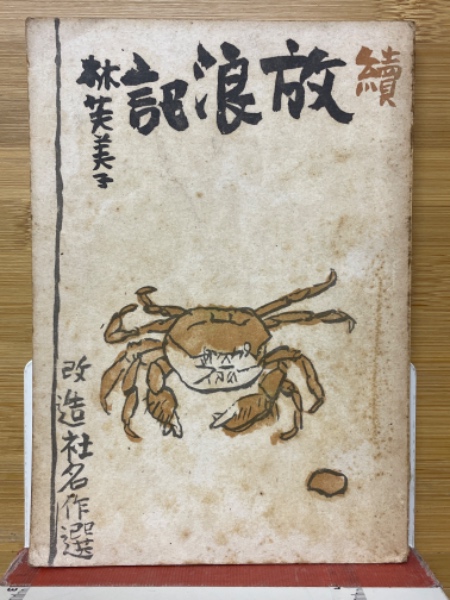 續
放浪記
林芙美子
改造社名作選